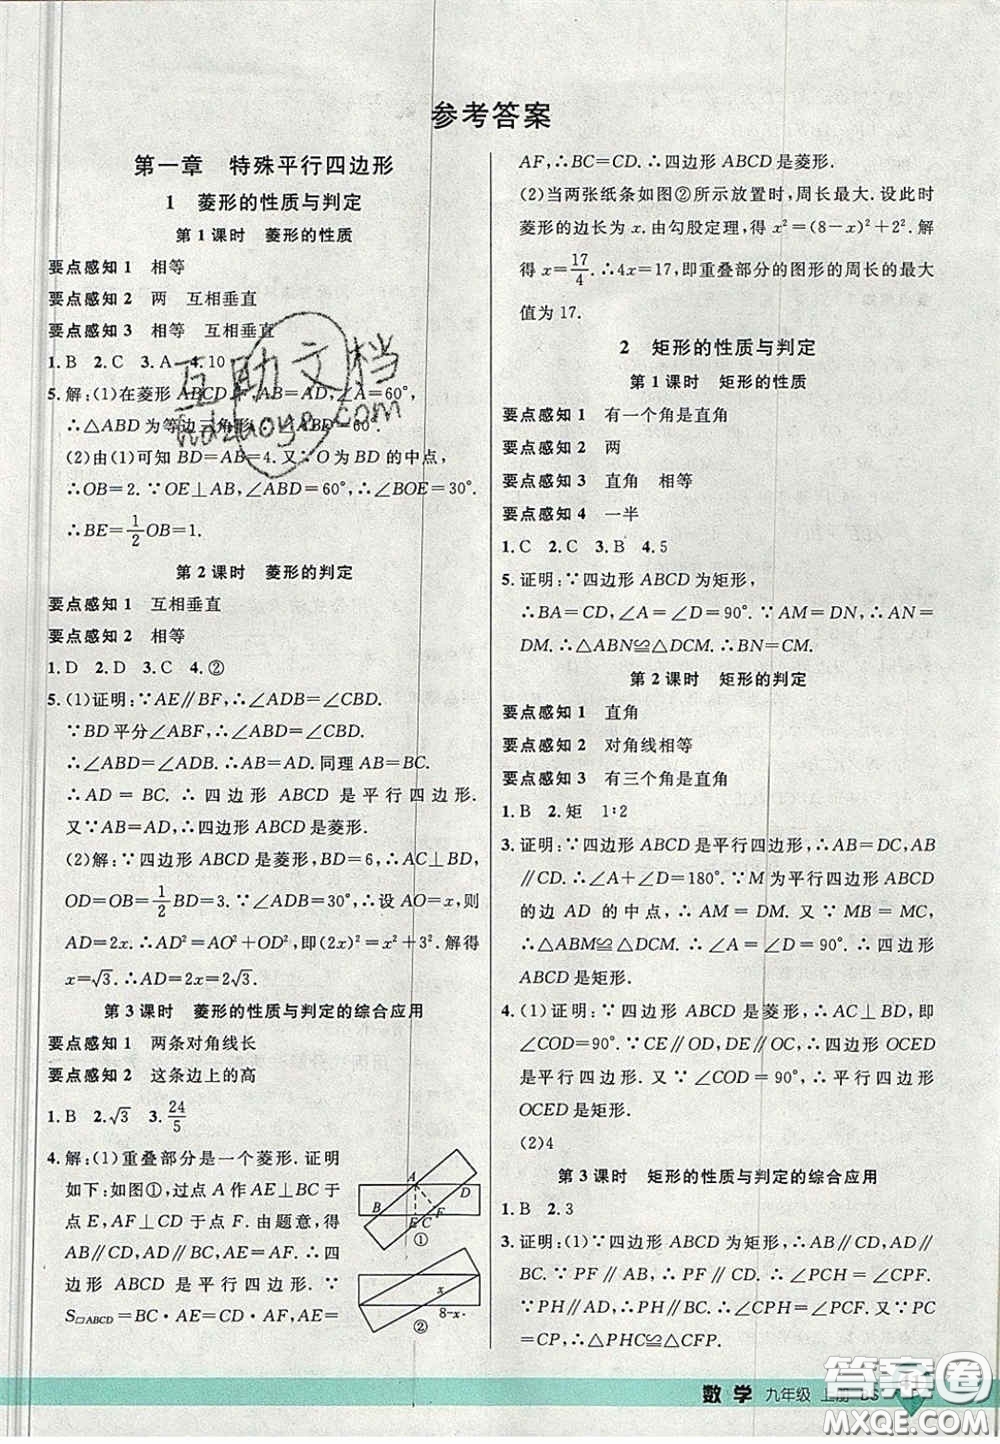 参考答案
第一章 特殊平行四边形
1 菱形的性质与判定
第1课时 菱形的性质
要点感知1 相等
要点感知2 两 互相垂直
要点感知3 相等 互相垂直
1.B 2.C 3.A 4.10
5.解:(1)在菱形ABCD中,AB=AD,∠A=60°,
∴△ABD为等边三角形.
(2)由(1)可知BD=AB=4.又∵O为BD的中点,
∴OB=2.∵OE⊥AB,∠ABD=60°,∴∠BOE=30°.
∴BE=1/2OB=1.
第2课时 菱形的判定
要点感知1 互相垂直
要点感知2 相等
1.D 2.D 3.C 4.②
5.(1)证明:∵AE∥BF,∴∠ADB=∠DBC.
∵BD平分∠ABF,∴∠ABD=∠DBF.
∴∠ABD=∠ADB.∴AB=AD.同理AB=BC.
∴AD=BC.∴四边形ABCD是平行四边形.
又∵AB=AD,∴四边形ABCD是菱形.
(2)解:∵四边形ABCD是菱形,BD=6,∴AC⊥BD,
OD=OB=1/2BD=3.∵∠ADB=30°,∴设AO=x,则
AD=2x.∴AD²=AO²+OD²,即(2x)²=x²+3².解得
x=√3.∴AD=2x=2√3.
第3课时 菱形的性质与判定的综合应用
要点感知1 两条对角线长
要点感知2 这条边上的高
1.B 2.√3 3.24/5
4.解:(1)重叠部分是一个菱形.证明
如下:如图①,过点A作AE⊥BC于
点E,AF⊥CD于点F.由题意,得
AB∥CD,AD∥BC,AE=AF.∴四
边形ABCD是平行四边形.∵
S▱ABCD=BC·AE=CD·AF,AE=
A
B
D
E C F
①
x
8-x
②
AF,∴BC=CD.∴四边形ABCD是菱形.
(2)当两张纸条如图②所示放置时,周长最大.设此时
菱形的边长为x.由勾股定理,得x²=(8-x)²+2².解
得x=17/4.∴4x=17,即重叠部分的图形的周长的最大
值为17.
2 矩形的性质与判定
第1课时 矩形的性质
要点感知1 有一个角是直角
要点感知2 两
要点感知3 直角 相等
要点感知4 一半
1.C 2.C 3.B 4.5
5.证明:∵四边形ABCD为矩形,
∴BA=CD,∠A=∠D=90°.∵AM=DN,∴AN=
DM.∴△ABN≌△DCM.∴BN=CM.
第2课时 矩形的判定
要点感知1 直角
要点感知2 对角线相等
要点感知3 有三个角是直角
1.B 2.矩 1:2
3.证明:∵四边形ABCD是平行四边形,∴AB=DC,AB
∥CD.∴∠A+∠D=180°.∵M为平行四边形ABCD
的边AD的中点,∴AM=DM.又∵MB=MC,
∴△ABM≌△DCM.∴∠A=∠D=90°.∴四边形
ABCD是矩形.
4.(1)证明:∵四边形ABCD是菱形,∴AC⊥BD,即
∠COD=90°.∵CE∥OD,DE∥OC,∴四边形OCED
是平行四边形.又∵∠COD=90°,∴平行四边形
OCED是矩形.
(2)4
第3课时 矩形的性质与判定的综合应用
1.B 2.3
3.证明:(1)∵四边形ABCD为矩形,∴AB∥CD,AD∥
BC.∵PF∥AB,∴PF∥CD.∴∠CPF=∠PCH.
∵PH∥AD,∴PH∥BC.∴∠PCF=∠CPH.又∵PC
=CP,∴△PHC≌△CFP.
数学 九年级 上册 DS
互助文档
hdzuoye.com
答案圈
MXQE.COM